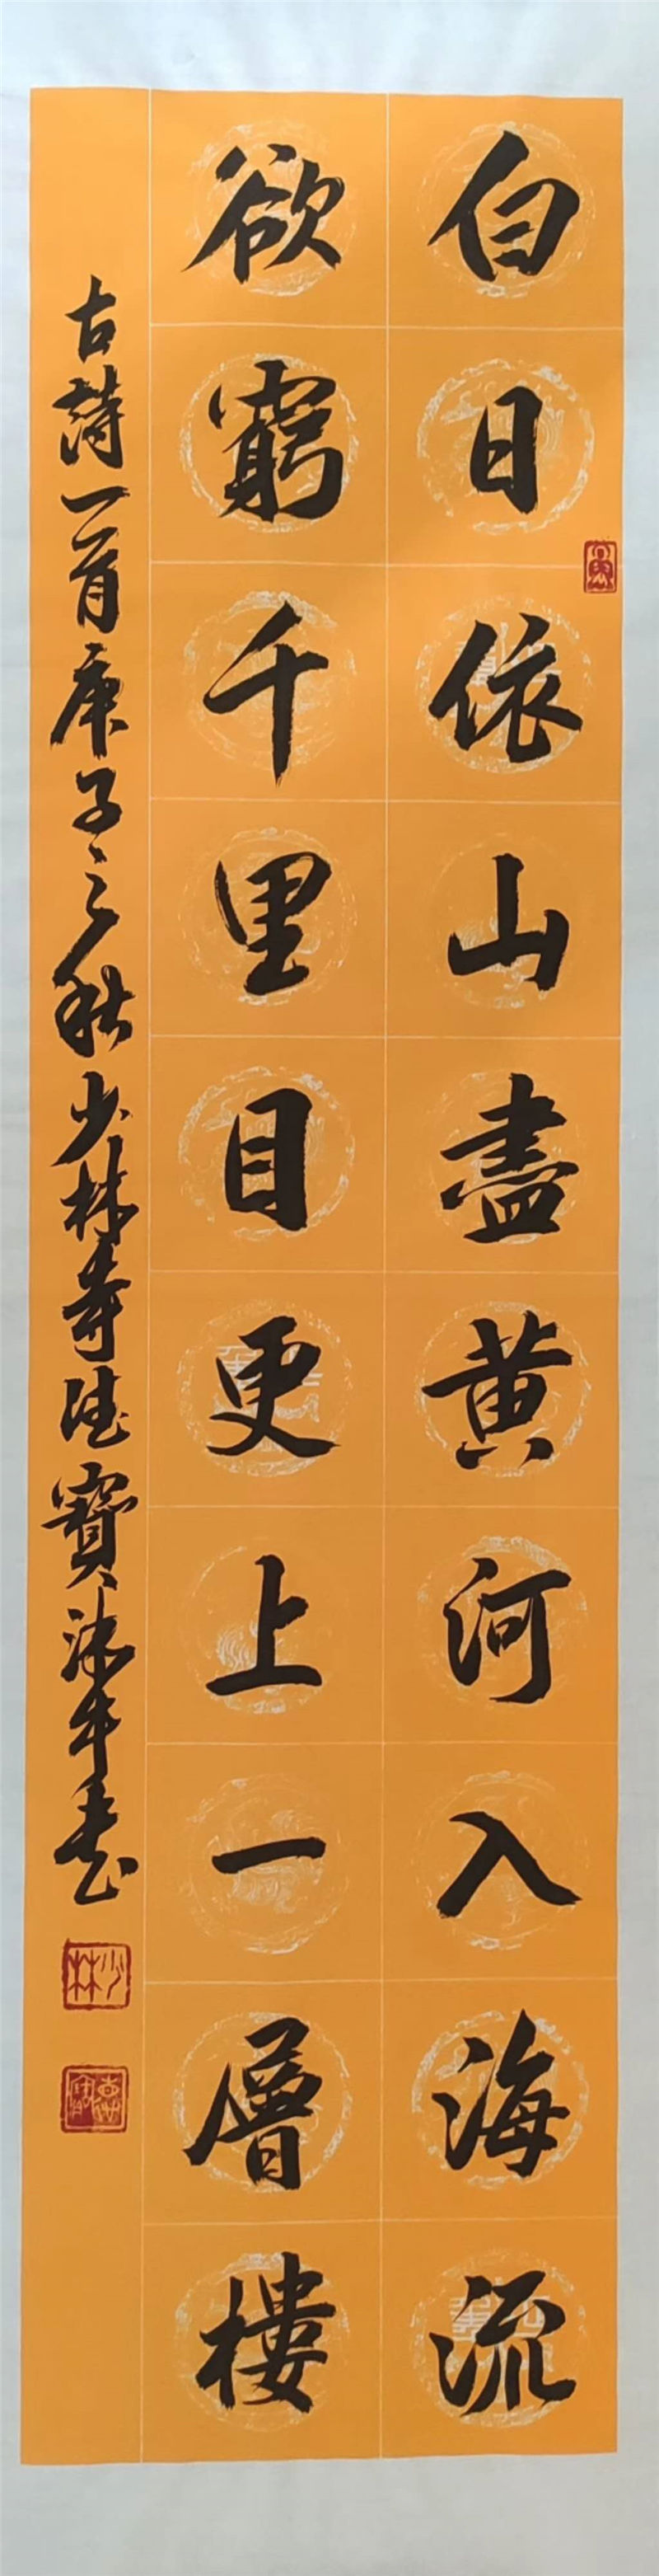 白日依山盡黄河入海流
欲窮千里目更上一層樓
古詩一首庚子之秋少林寺法寶沐手書
少林